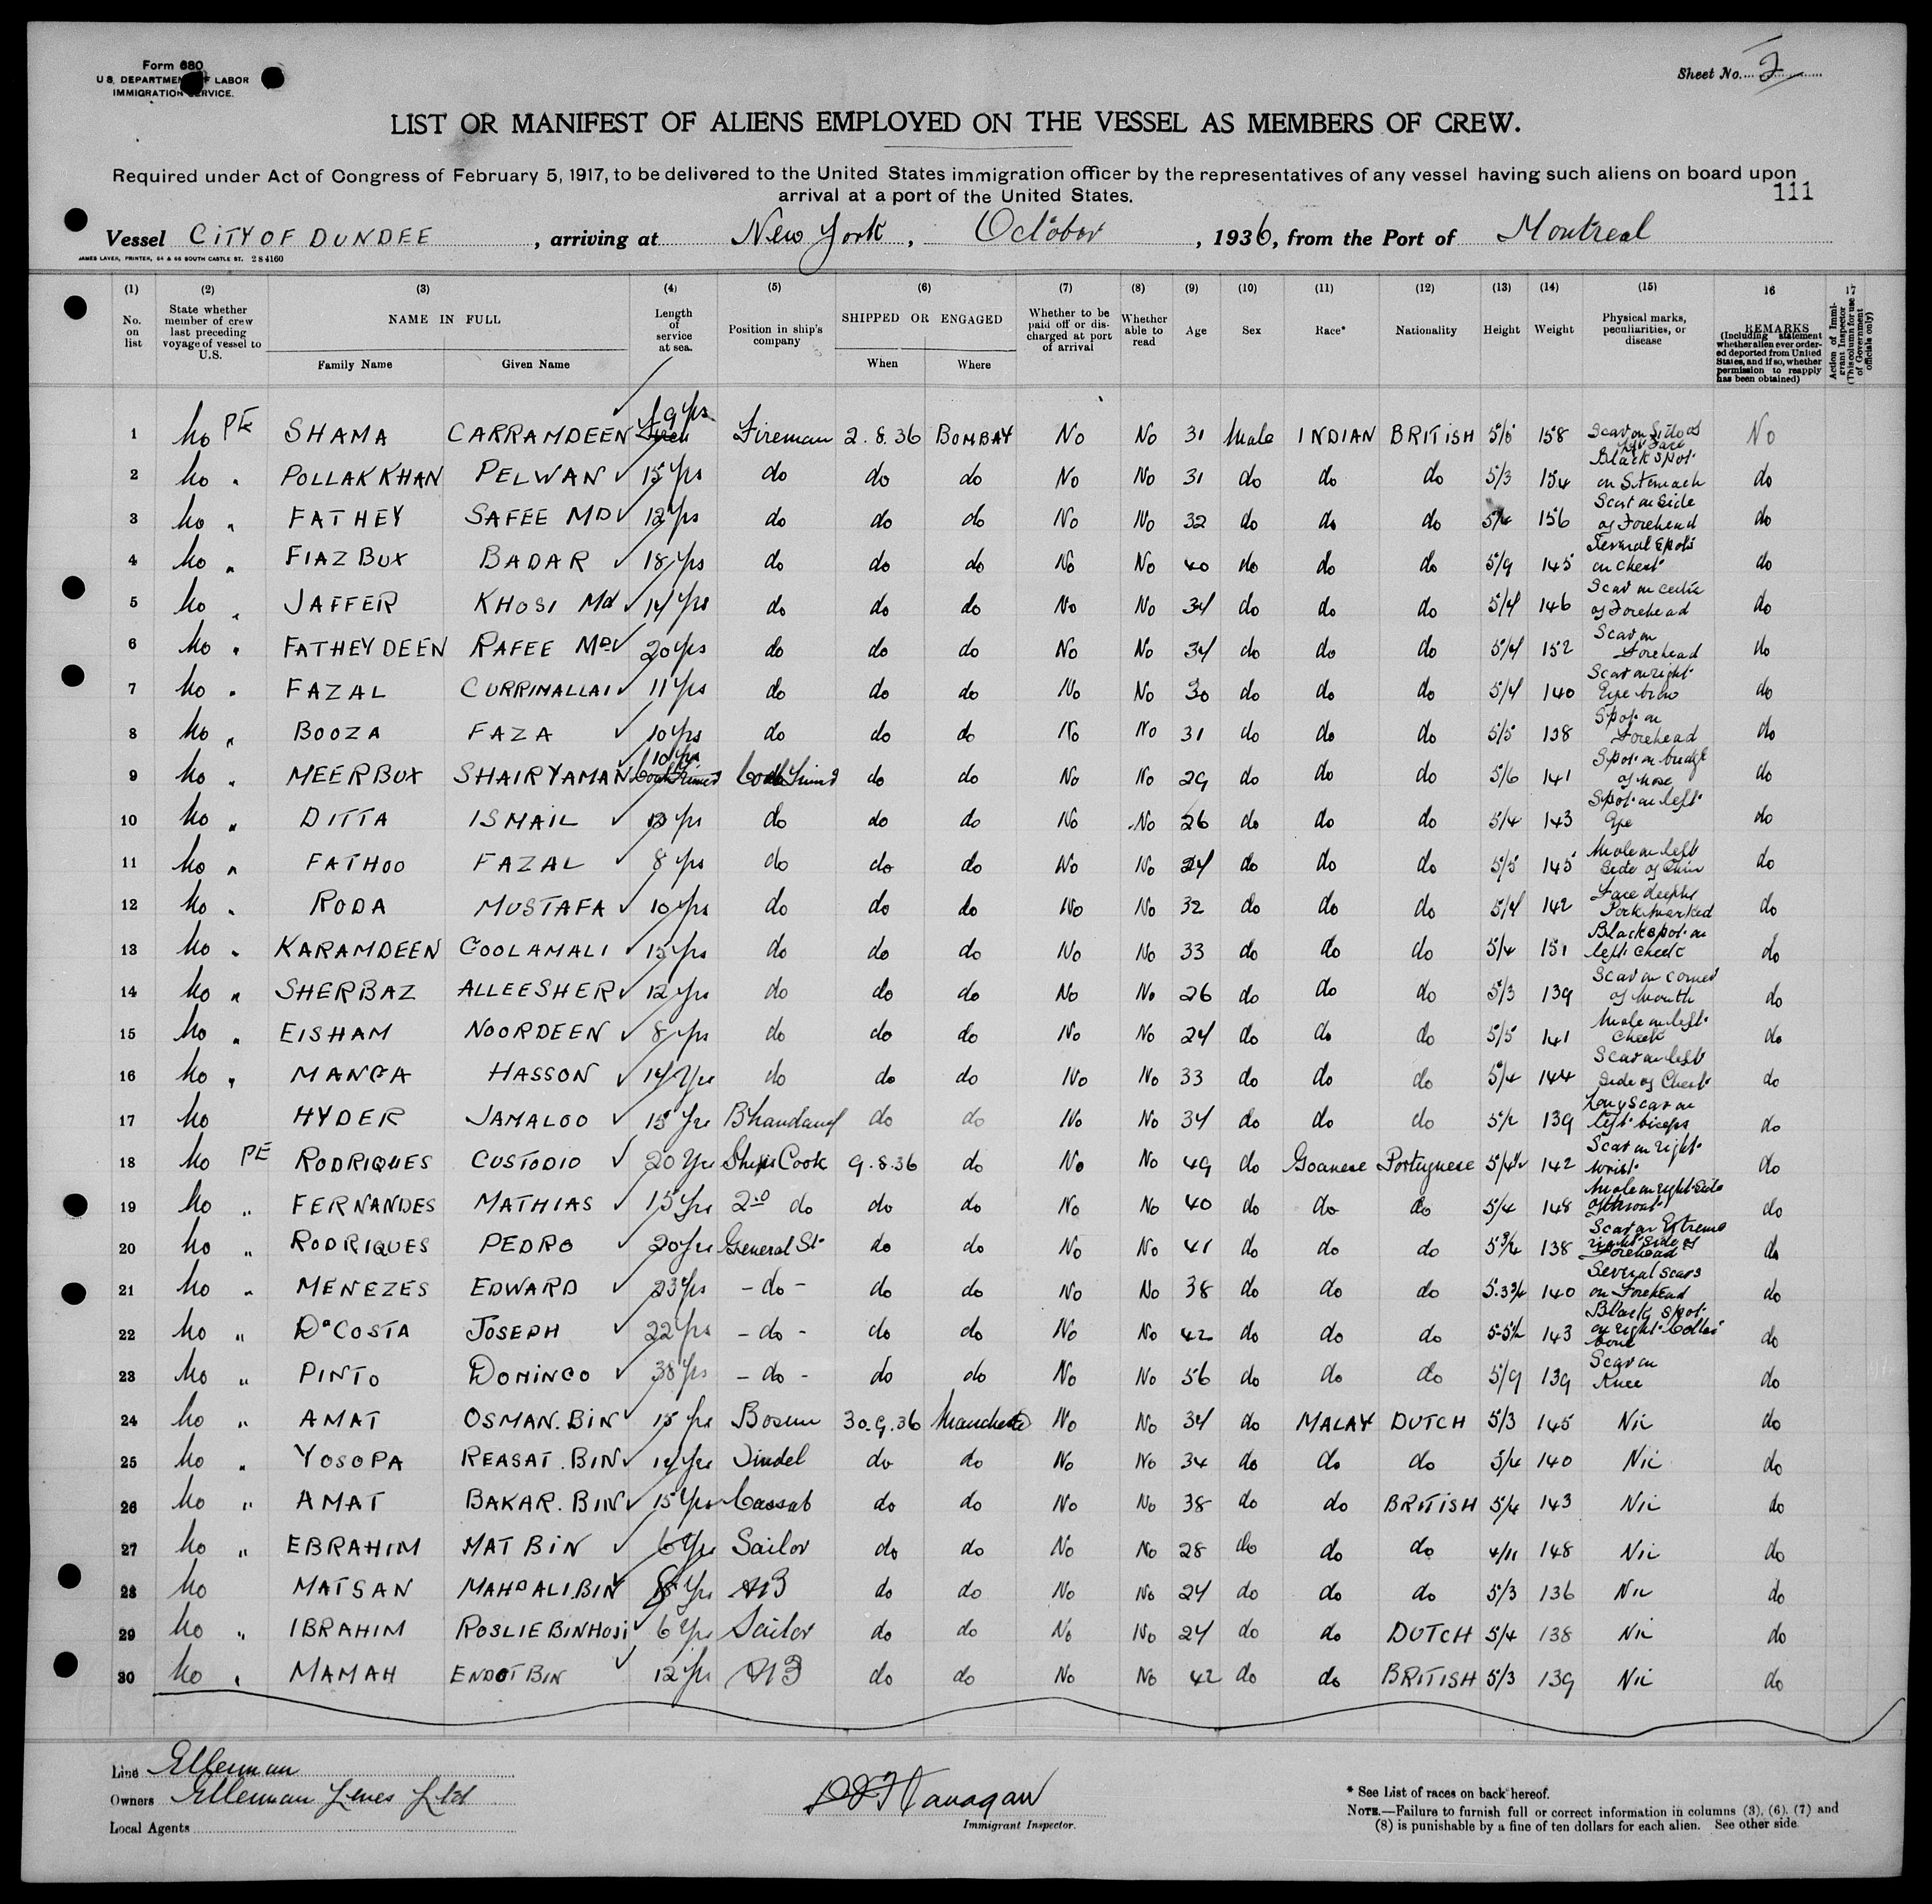 Form 680
U.S. DEPARTMENT OF LABOR
IMMIGRATION SERVICE.
Sheet No. 2
LIST OR MANIFEST OF ALIENS EMPLOYED ON THE VESSEL AS MEMBERS OF CREW.
Required under Act of Congress of February 5, 1917, to be delivered to the United States immigration officer by the representatives of any vessel having such aliens on board upon
arrival at a port of the United States.
111
Vessel CITY OF DUNDEE, arriving at New York, October, 1936, from the Port of Montreal
JAMES LAVER, PRINTER, 64 & 66 SOUTH CASTLE ST. 284160
(1) (2) (3) (4) (5) (6) (7) (8) (9) (10) (11) (12) (13) (14) (15) 16 17
No. on list State whether member of crew last preceding voyage of vessel to U.S. NAME IN FULL Family Name Given Name Length of service at sea. Position in ship's company SHIPPED OR ENGAGED When Where Whether to be paid off or discharged at port of arrival Whether able to read Age Sex Race* Nationality Height Weight Physical marks, peculiarities, or disease REMARKS (Including statement whether alien ever ordered deported from United States, and if so, whether permission to reapply has been obtained) Action of Immigrant Inspector (This column for use of Government officials only)
1 No PE SHAMA CARRAMDEEN 9 yrs Fireman 2.8.36 BOMBAY No No 31 Male INDIAN BRITISH 158 Scar on Side of Face No
2 No " POLLAK KHAN PELWAN 15 yrs do do do No No 31 do do do 5/3 154 Black spot on Stomach do
3 No " FATHEY SAFEE MD 12 yrs do do do No No 32 do do do 5/4 156 Scar on Side of Forehead do
4 No " FIAZ BUX BADAR 18 yrs do do do No No 40 do do do 5/9 145 Several Spots on Chest do
5 No " JAFFER KHOSI Md 14 yrs do do do No No 34 do do do 5/4 146 Scar on centre of Forehead do
6 No " FATHEY DEEN RAFEE MD 20 yrs do do do No No 34 do do do 5/4 152 Scar on Forehead do
7 No " FAZAL CURRIMALLAI 11 yrs do do do No No 30 do do do 5/4 140 Scar on right Eye brow do
8 No " BOOZA FAZA 10 yrs do do do No No 31 do do do 5/5 138 Spot on Forehead do
9 No " MEERBUX SHAIRYAMAN 10 yrs do do No No 29 do do do 5/6 141 Spot on bridge of Nose do
10 No " DITTA ISMAIL yrs do do do No No 26 do do do 5/4 143 Spot on left Eye do
11 No " FATHOO FAZAL 8 yrs do do do No No 24 do do do 5/5 145 Mole on left Side of Chin do
12 No " RODA MUSTAFA 10 yrs do do do No No 32 do do do 5/4 142 Face deeply Pock marked do
13 No " KARAMDEEN GOOLAMALI 15 yrs do do do No No 33 do do do 5/4 151 Black spot on left cheek do
14 No " SHERBAZ ALLEESHER 12 yrs do do do No No 26 do do do 5/3 139 Scar on corner of Mouth do
15 No " EISHAM NOORDEEN 8 yrs do do do No No 24 do do do 5/5 141 Mole on left Cheek do
16 No " MANGA HASSON 14 yrs do do do No No 33 do do do 5/4 144 Scar on left Side of Chest do
17 No HYDER JAMALOO 15 yrs Bhandary do do No No 34 do do do 5/2 139 Long Scar on left biceps do
18 No PE RODRIQUES CUSTODIO 20 yrs Ships Cook 9.8.36 do No No 49 do Goanese Portuguese 5/4½ 142 Scar on right wrist do
19 No " FERNANDES MATHIAS 15 yrs 2nd do do do No No 40 do do do 5/4 148 Mole on right Side of throat do
20 No " RODRIQUES PEDRO 20 yrs General St. do do No No 41 do do do 138 Scar on Extreme right side of Forehead do
21 No " MENEZES EDWARD 23 yrs - do - do do No No 38 do do do 5-3¾ 140 Several scars on Forehead do
22 No " DaCOSTA JOSEPH 22 yrs - do - do do No No 42 do do do 5-5½ 143 Black spot on right Collar bone do
23 No " PINTO DOMINGO 38 yrs - do - do do No No 56 do do do 5/9 139 Scar on Knee do
24 No " AMAT OSMAN. BIN 15 yrs Bosun 30.9.36 Manchester No No 34 do MALAY DUTCH 5/3 145 Nil do
25 No " YOSOPA REASAT. BIN 14 yrs Tindel do do No No 34 do do do 5/4 140 Nil do
26 No " AMAT BAKAR. BIN 15 yrs Cassab do do No No 38 do do BRITISH 5/4 143 Nil do
27 No " EBRAHIM MAT BIN 6 yrs Sailor do do No No 28 do do do 4/11 148 Nil do
28 No MATSAN MAHD ALI.BIN yrs AB do do No No 24 do do do 5/3 136 Nil do
29 No " IBRAHIM ROSLIE BIN HOSI 6 yrs Sailor do do No No 24 do do DUTCH 5/4 138 Nil do
30 No " MAMAH ENDOT BIN 12 yrs AB do do No No 42 do do BRITISH 5/3 139 Nil do
Line Ellerman
Owners Ellerman Lines Ltd
Local Agents
Flanagan
Immigrant Inspector.
* See List of races on back hereof.
NOTE.—Failure to furnish full or correct information in columns (3), (6), (7) and
(8) is punishable by a fine of ten dollars for each alien. See other side.